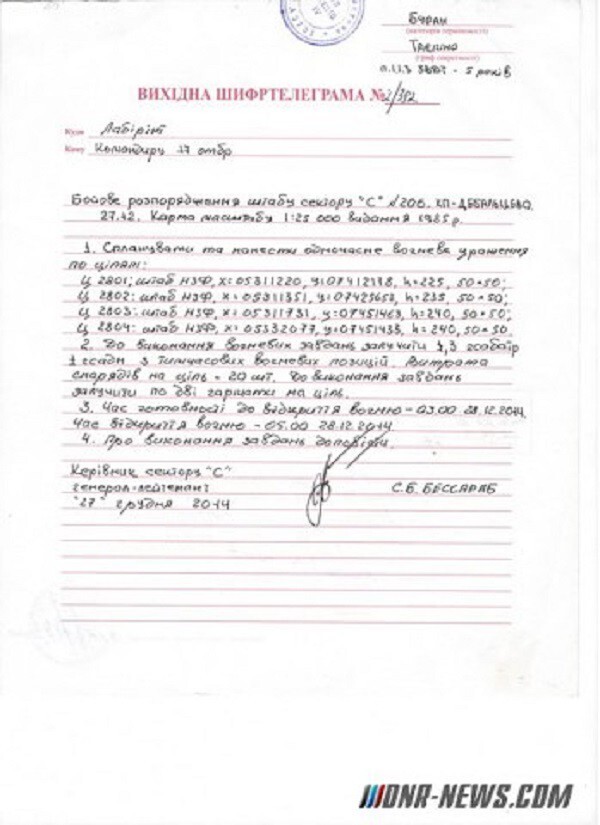 Буран
(категорія терміновості)
Таємно
(гриф секретності)
п.1.1.3 ЗВДТ - 5 років
ВИХІДНА ШИФРТЕЛЕГРАМА № 2/352
Куди Лабіринт
Кому Командиру 17 отбр
Бойове розпорядження штабу сектору "С" №206. КП-ДЕБАЛЬЦЕВО.
27.12. Карта масштабу 1:25 000 видання 1985 р.
1. Спланувати та нанести одночасне вогневе ураження
по цілям:
Ц 2801: штаб НЗФ, х=05311220, у=07412198, h=225, 50×50;
Ц 2802: штаб НЗФ, х=05311351, у=07425653, h=235, 50×50;
Ц 2803: штаб НЗФ, х=05311731, у=07451463, h=240, 50×50;
Ц 2804: штаб НЗФ, х=05332077, у=07451433, h=240, 50×50.
2. До виконання вогневих завдань залучити 1,3 гсабатр
1 гсадн з тимчасових вогневих позицій. Витрата
снарядів на ціль - 20 шт. До виконання завдань
залучити по дві гармати на ціль.
3. Час готовності до відкриття вогню - 03.00 28.12.2014.
Час відкриття вогню - 05.00 28.12.2014.
4. Про виконання завдань доповісти.
Керівник сектору "С"
генерал-лейтенант
С.Б. БЕССАРАБ
"27" грудня 2014
DNR-NEWS.COM